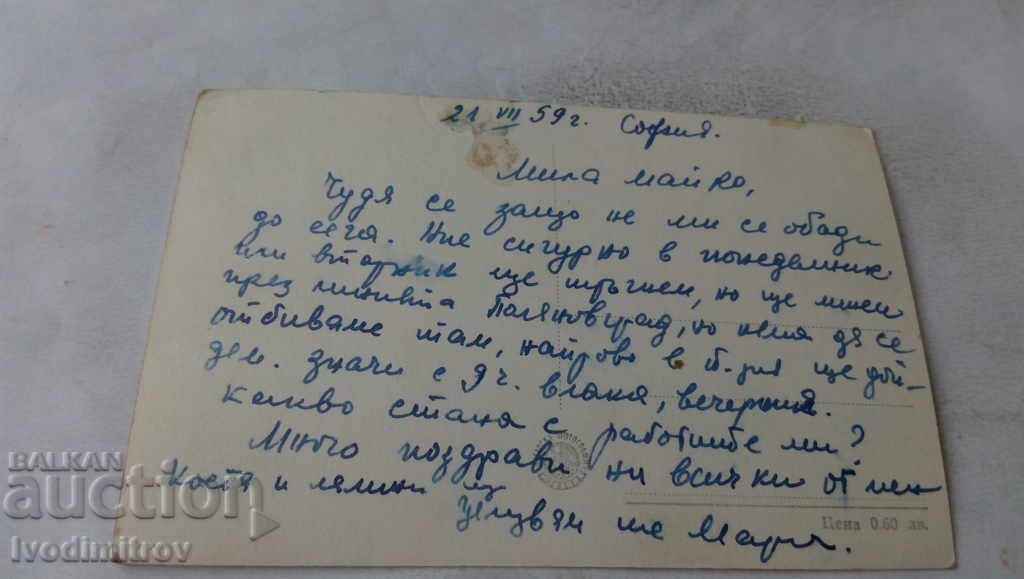 21 VII 59 г. София.
Мила майко,
Чудя се защо не ми се обади
до сега. Ние сигурно в понеделник
или вторник ще тръгнем, но ще минем
през линията Поляновград, но няма да се
отбиваме там, направо в ще дой-
дем. Значи с 9 ч. влака, вечерния.
Какво стана с работите ми?
Много поздрави на всички от мен
Костя и
Целувам те Мара.
Цена 0.60 лв.
BALKAN
auction
ivodimitrov